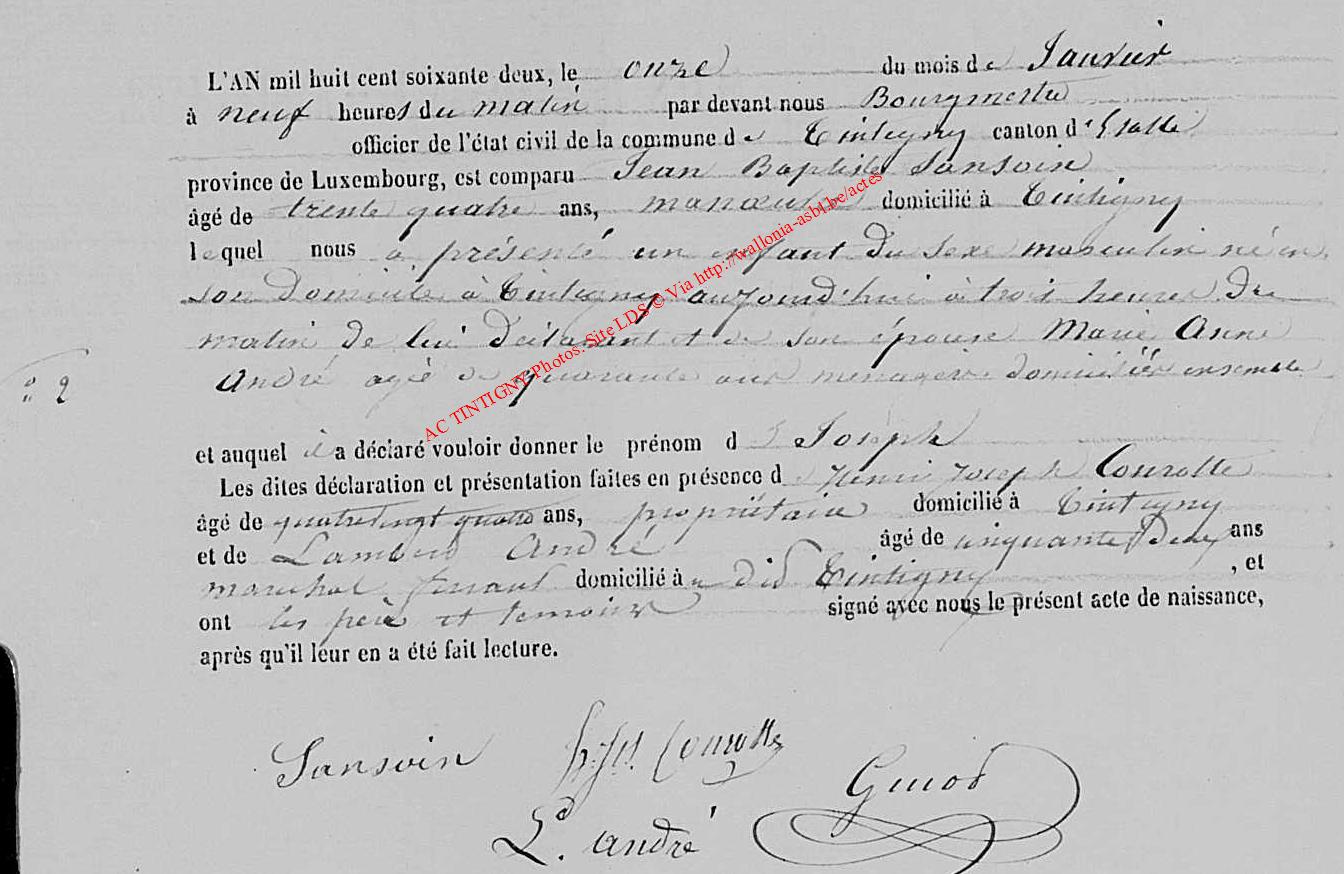 L'AN mil huit cent soixante deux, le onze du mois de Janvier
à neuf heures du matin par devant nous Bourgmestre
officier de l'état civil de la commune de Tintigny canton d'Etalle
province de Luxembourg, est comparu Jean Baptiste Sansoin
âgé de trente quatre ans, manœuvre domicilié à Tintigny
lequel nous a présenté un enfant du sexe masculin né en
son domicile à Tintigny aujourd'hui à trois heures du
matin de lui déclarant et de son épouse Marie Anne
André agée de quarante ans ménagère domiciliés ensemble
n° 2
et auquel il a déclaré vouloir donner le prénom de Joseph
Les dites déclaration et présentation faites en présence de Henri Joseph Conrotte
âgé de quatre vingt quatre ans, propriétaire domicilié à Tintigny
et de Lambert André âgé de cinquante deux ans
maréchal ferrant domicilié à dit Tintigny , et
ont les père et temoins signé avec nous le présent acte de naissance,
après qu'il leur en a été fait lecture.
Sansoin h. jh. Conrotte
Ld. andré Guiot
AC TINTIGNY Photos. Site LDS © Via http://wallonia-asbl.be/actes